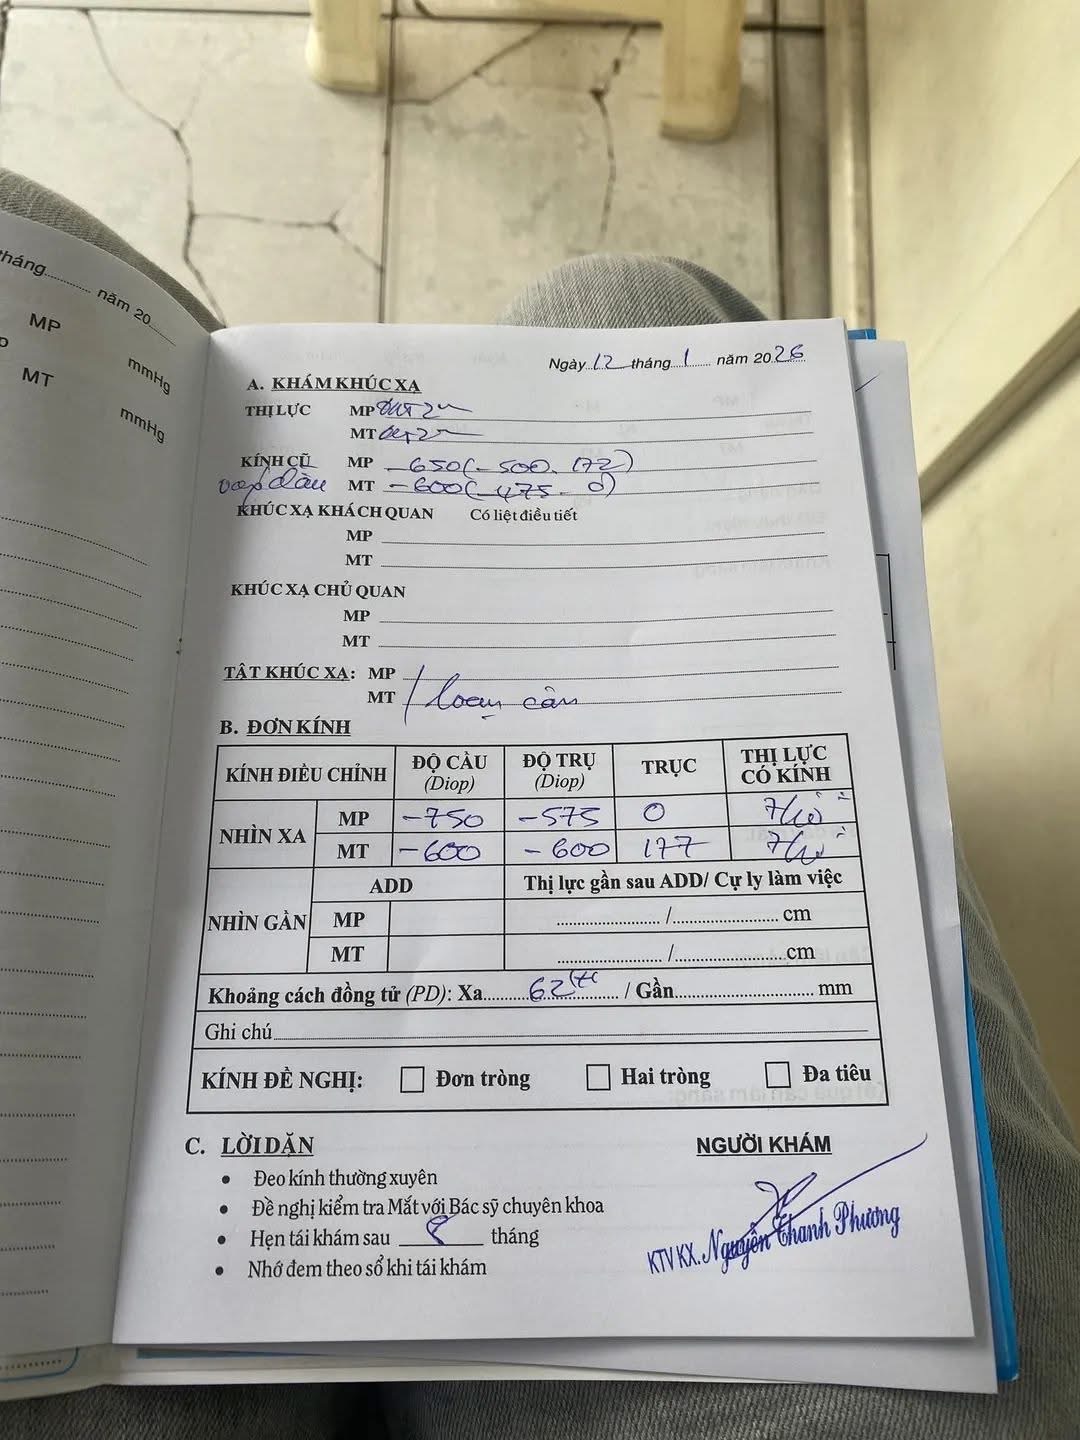 tháng......... năm 20.....
MP mmHg
MT mmHg
Ngày 12 tháng 1 năm 2026
A. KHÁM KHÚC XẠ
THỊ LỰC MP
MT
KÍNH CŨ MP -650(-500. 172)
MT -600(-475 - 0)
KHÚC XẠ KHÁCH QUAN Có liệt điều tiết
MP
MT
KHÚC XẠ CHỦ QUAN
MP
MT
TẬT KHÚC XẠ: MP
MT loạn cận
B. ĐƠN KÍNH
KÍNH ĐIỀU CHỈNH ĐỘ CẦU (Diop) ĐỘ TRỤ (Diop) TRỤC THỊ LỰC CÓ KÍNH
NHÌN XA MP -750 -575 0
MT -600 -600 177
NHÌN GẦN ADD Thị lực gần sau ADD/ Cự ly làm việc
MP ...................... /...................... cm
MT ...................... /...................... cm
Khoảng cách đồng tử (PD): Xa 62 / Gần............................ mm
Ghi chú
KÍNH ĐỀ NGHỊ: Đơn tròng Hai tròng Đa tiêu
C. LỜI DẶN NGƯỜI KHÁM
Đeo kính thường xuyên
Đề nghị kiểm tra Mắt với Bác sỹ chuyên khoa
Hẹn tái khám sau tháng
Nhớ đem theo sổ khi tái khám
KTV KX. Nguyễn Thanh Phương